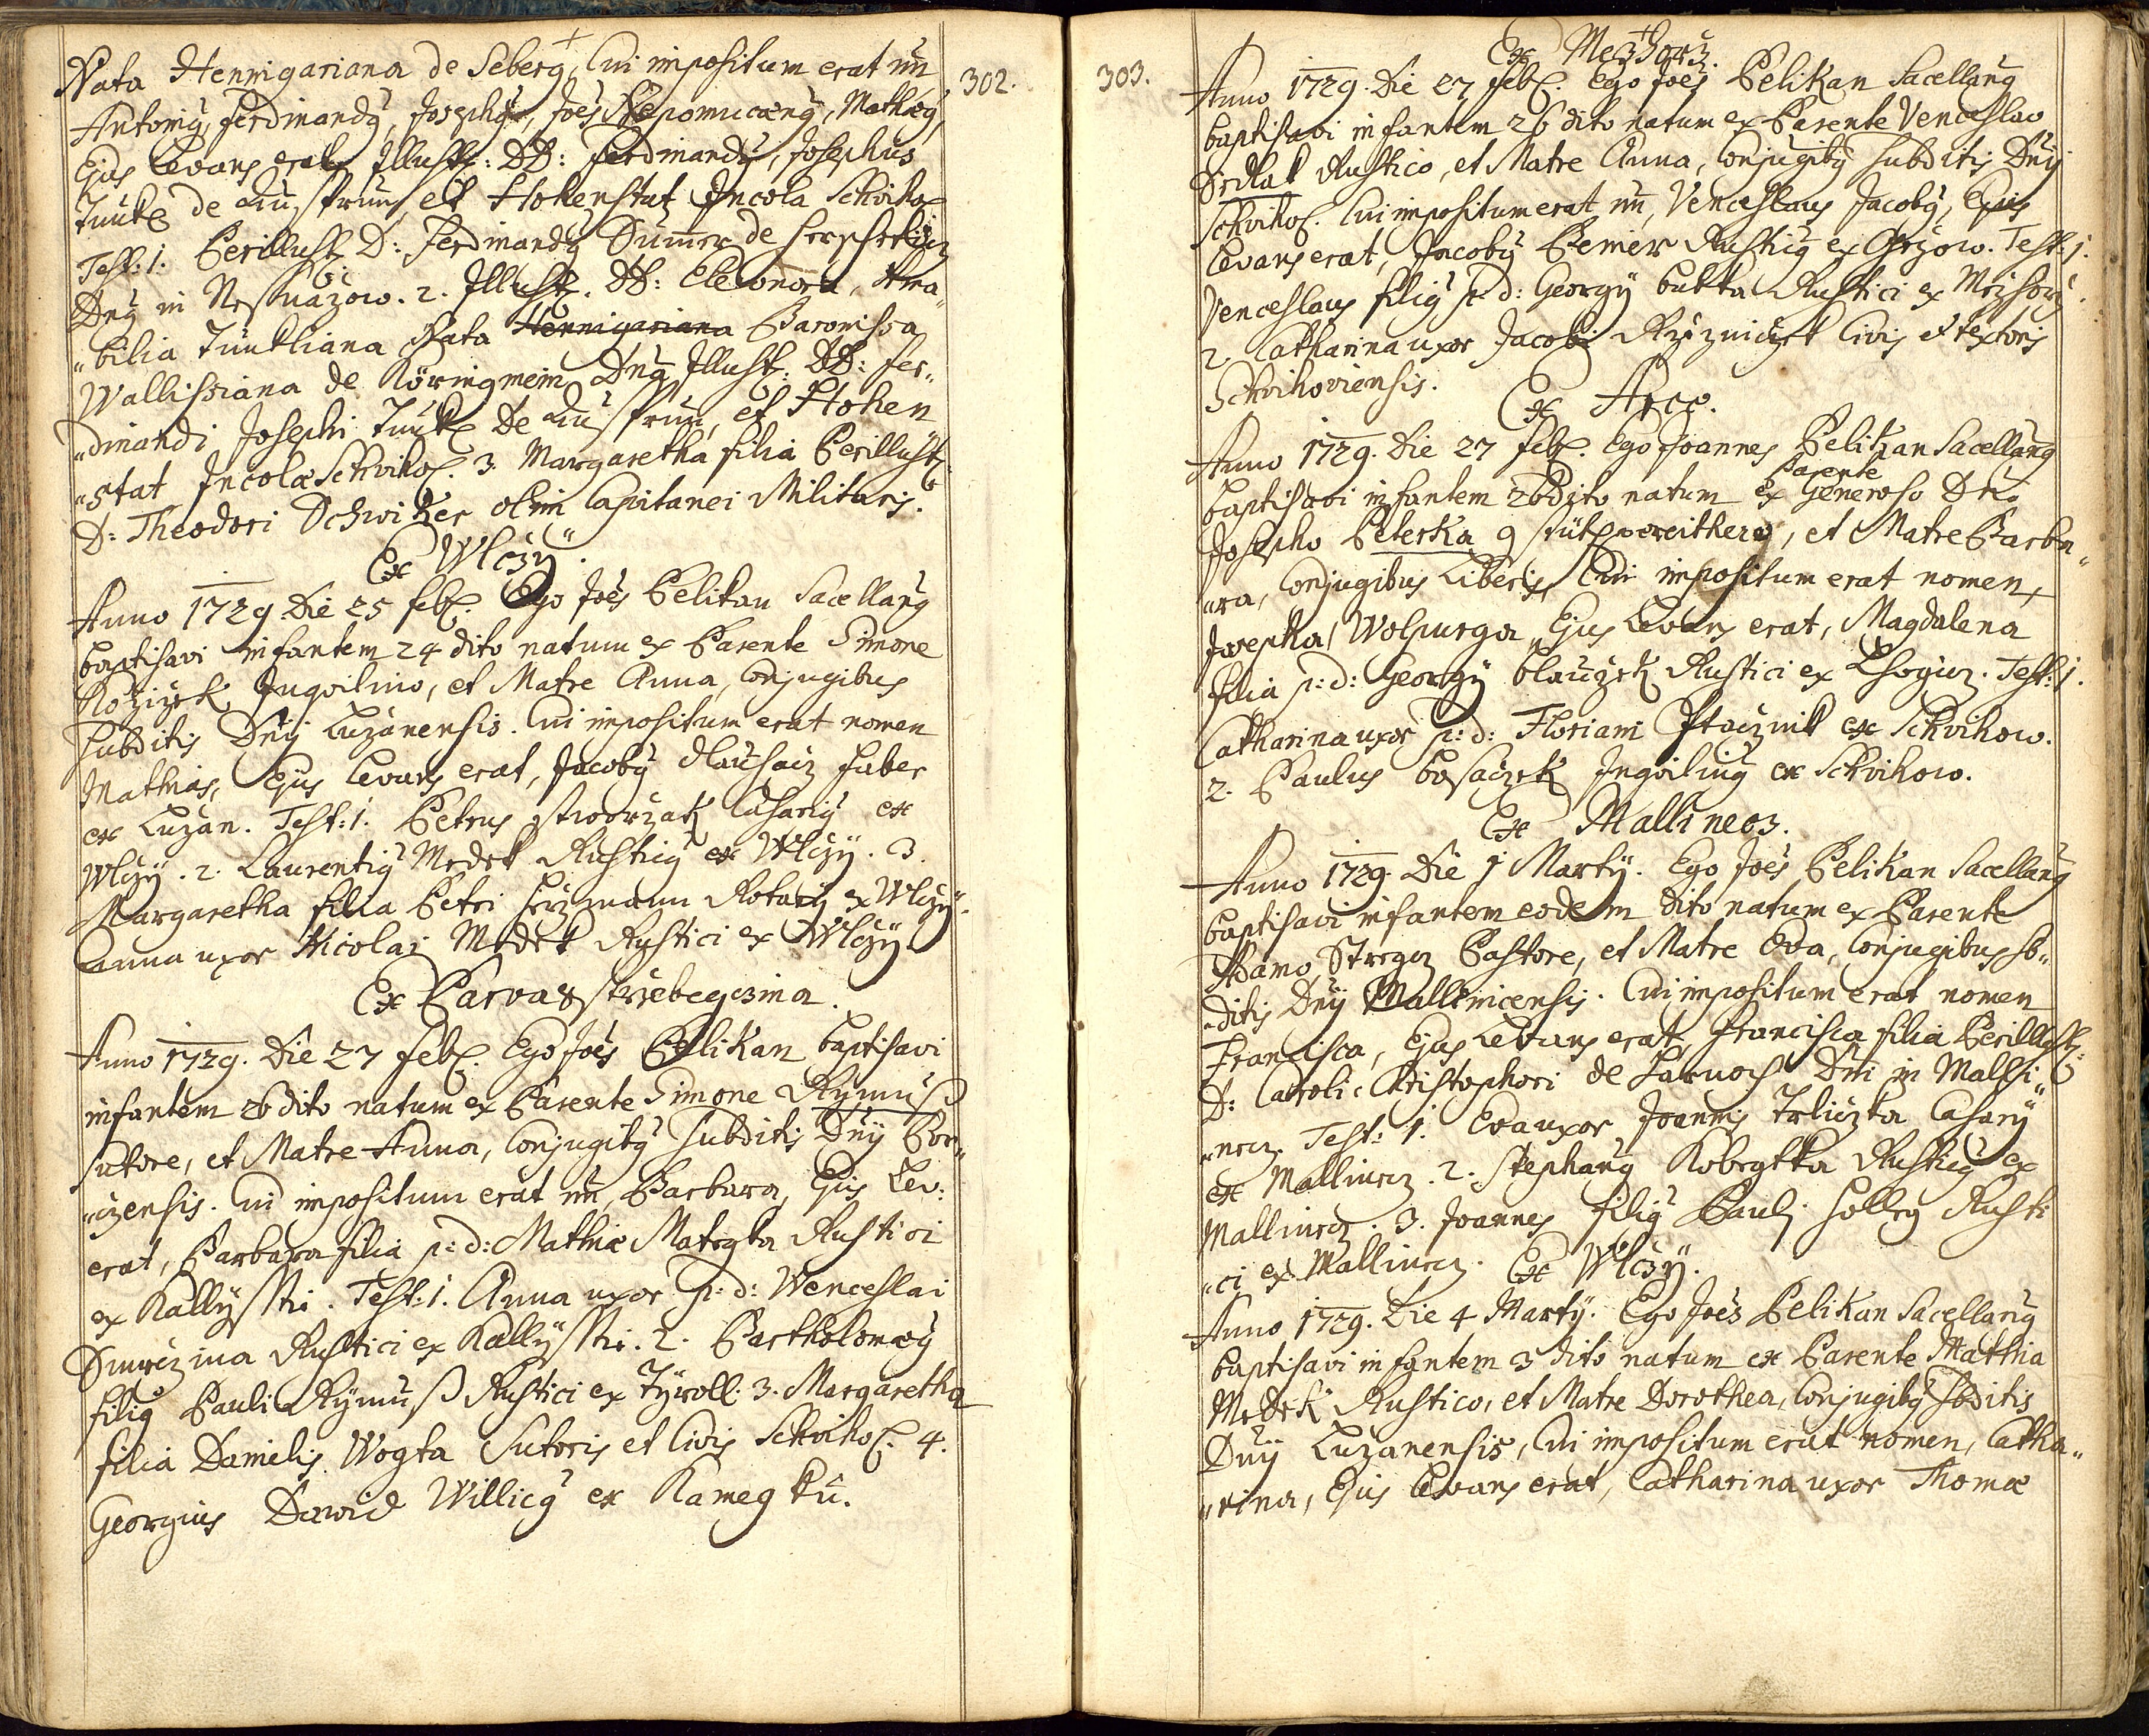 Nata Hennigariana de Seberg, Cui impositum erat nn
Antoniꝰ, Ferdinandꝰ, Josephꝰ, Joēs Nepomucænꝰ, Mathæꝰ,
Ejus Levans erat Illust: DD: Ferdinandꝰ, Josephus
Tunkl de et Hohenstat Incola Schvihof
Test: 1. Perillust D: Ferdinandꝰ de
Dnꝰ in 2. Illust. DD: Eleonora, Ama
„bilia Tunkliana Nata Hennigariana Baronissa
Wallisiana de Köningmein Dnꝰ Illust: DD: Fer„
„dinandi Josephi Tunkl De et Hohen
„stat Incolæ Schvihof. 3. Margaretha filia Perillust
D: Theodori Schwitzer olim Capitanei Militaris.
Ex Wlczy.
Anno 1729. Die 25 feb. Ego Joēs Pelikan Sacellanꝰ
baptisavi infantem 24 dito natum ex Parente Simone
Inquilino, et Matre Anna, Conjugibus
subditis Dnÿ Luzanensis. Cui impositum erat nomen
Mathias, Ejus Levans erat, Jacobꝰ faber
ex Luzan. Test: 1. Petrus Casariꝰ ex
Wlczÿ. 2. Laurentiꝰ Medek Rusticꝰ ex Wlczÿ. 3.
Margaretha filia Petri Rotarÿ ex Wlczÿ.
Anna uxor Nicolai Medek Rustici ex Wlczÿ.
Ex Parva
Anno 1729. Die 27 feb. Ego Joēs Pelikan baptisavi
infantem 26 dito natum ex Parente Simone Rymuß
sutore, et Matre Anna, Conjugibꝰ subditis Dnÿ Por„
„czensis. Cui impositum erat nn, Barbara, Ejus Lev:
erat, Barbara filia p: d: Mathiæ Mategka Rustici
ex Kallÿsst. Test: 1. Anna uxor p: d: Wenceslai
Rustici ex Kallÿsst. 2. Bartholomæꝰ
filiꝰ Pauli Rÿmuß Rustici ex Tÿroll. 3. Margaretha
filia Danielis Wogta Sutoris et Civis Schvihof. 4.
Georgius Dawid Willicꝰ ex Kamegku.
302.
303.
Ex Mezhorz.
Anno 1729. Die 27 feb. Ego Joēs Pelikan Sacellanꝰ
baptisavi infantem 26 dito natum ex Parente Venceslao
Sedlak Rustico, et Matre Anna, Conjugibꝰ subditis Dnÿ
Schvihof. Cui impositum erat nn, Venceslaus Jacobꝰ, Ejus
Levans erat, Jacobꝰ Rusticꝰ ex Test: 1.
Venceslaus filiꝰ p: d: Georgÿ bukta Rustici ex Mezhorz.
2. Catharina uxor Jacobi Rzezniczek Civis et textoris
Schvihoviensis.
Ex Arce.
Anno 1729. Die 27 feb. Ego Joannes Pelikan Sacellanꝰ
baptisavi infantem 26 dito natum ex Parente Generoso Dno
Josepho Peterka et Matre Barba„
„ra, Conjugibus Liberis, Cui impositum erat nomen,
Josepha, Wolpurga, Ejus Levans erat, Magdalena
filia p: d: Georgÿ blauczek Rustici ex Test: 1.
Catharina uxor p: d: Floriani Ptacznik ex Schvihow.
2. Paulus bosaczek Inquilinꝰ ex Schvihow.
Ex Mallinecz.
Anno 1729. Die 1 Martÿ. Ego Joēs Pelikan Sacellanꝰ
baptisavi infantem eodem dito natum ex Parente
Adamo Pastore, et Matre Eva, Conjugibus sb„
„ditis Dnÿ Mallinicensis. Cui impositum erat nomen
Francisca, Ejus Levans erat, Francisca filia Perillust:
D: Caroli Christophori de Dni in Malli„
„necz. Test: 1. Eva uxor Joannis Trliczka Casarÿ
ex Mallinecz. 2. Stephanꝰ Kobegtka Rusticꝰ ex
Mallinecz. 3. Joannes filiꝰ Pauli holleg Rusti
„ci ex Mallinecz. Ex Wlczÿ.
Anno 1729. Die 4 Martÿ. Ego Joēs Pelikan Sacellanꝰ
baptisavi infantem 3 dito natum ex Parente Mathia
Medek Rustico, et Matre Dorothea, Conjugibꝰ sbditis
Dnÿ Luzanensis, Cui impositum erat nomen, Catha„
„rina, Ejus Levans erat, Catharina uxor Thomæ